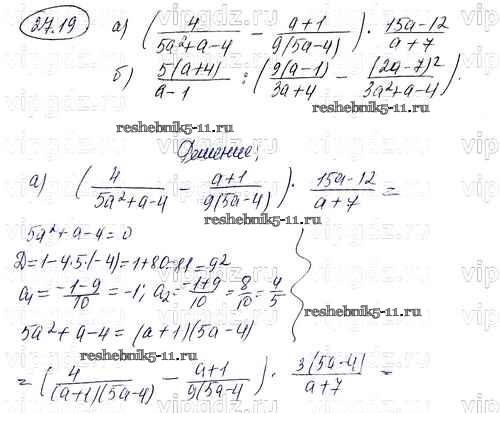 27.19 а) (4/(5a²+a-4) - (a+1)/(9(5a-4))) · (15a-12)/(a+7)
б) 5(a+4)/(a-1) : (9(a-1)/(3a+4) - (2a-7)²/(3a²+a-4)).
reshebnik5-11.ru
Решение;
а) (4/(5a²+a-4) - (a+1)/(9(5a-4))) · (15a-12)/(a+7) =
reshebnik5-11.ru
5a²+a-4=0
D=1-4·5·(-4)=1+80=81=9²
a₁=(-1-9)/10=-1; a₂=(-1+9)/10=8/10=4/5
5a²+a-4=(a+1)(5a-4)
reshebnik5-11.ru
=(4/((a+1)(5a-4)) - (a+1)/(9(5a-4))) · 3(5a-4)/(a+7) =
reshebnik5-11.ru